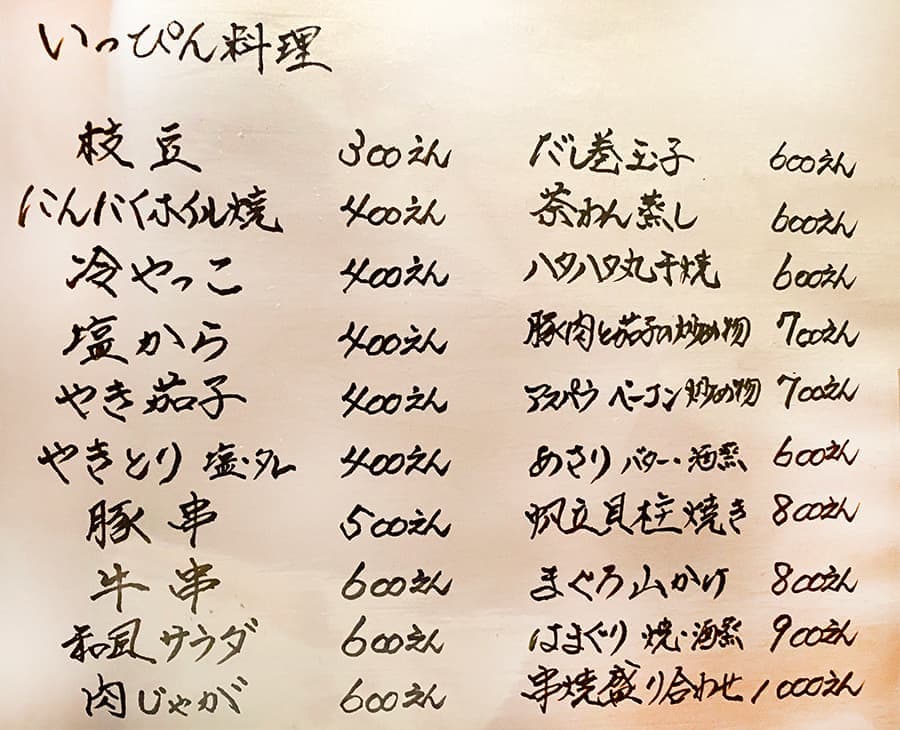 いっぴん料理
枝豆 300えん
にんにくホイル焼 400えん
冷やっこ 400えん
塩から 400えん
やき茄子 400えん
やきとり 塩・タレ 400えん
豚串 500えん
牛串 600えん
和風サラダ 600えん
肉じゃが 600えん
だし巻玉子 600えん
茶わん蒸し 600えん
ハタハタ丸干焼 600えん
豚肉と茄子の炒め物 700えん
アスパラ ベーコン炒め物 700えん
あさり バター・酒蒸 600えん
帆立貝柱焼き 800えん
まぐろ山かけ 800えん
はまぐり 焼・酒蒸 900えん
串焼盛り合わせ 1000えん